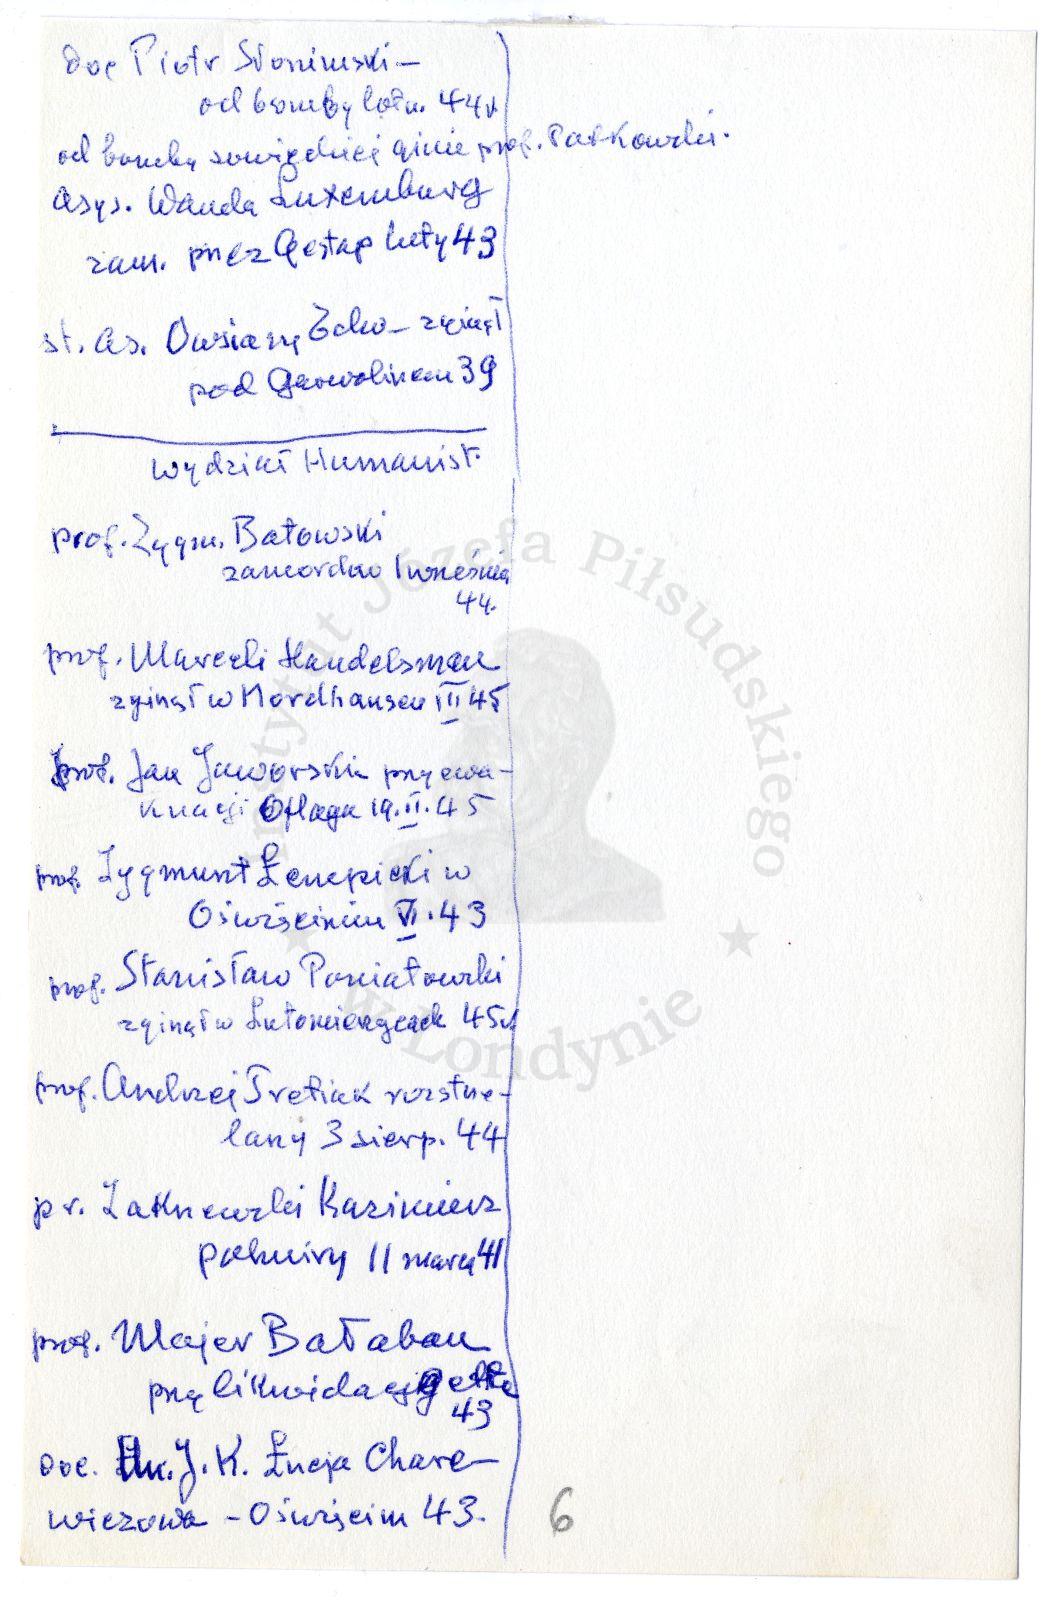 doc Piotr Słonimski –
od bomby lotn. 44r
od bomby sowieckiej ginie prof. Patkowski.
asys. Wanda Luxemburg
zam. przez Gestap luty 43
st. as. Owsiany Zdw – zginął
pod Garwolinem 39
Wydział Humanist.
prof. Zygm. Batowski
zamordow 1 września
44.
prof. Marceli Handelsman
zginął w Nordhausen III 45
prof. Jan Jaworski przy ewa-
kuacji Oflagu 19.II.45
prof. Zygmunt Łempicki w
Oświęcimiu VI.43
prof. Stanisław Poniatowski
zginął w 45r
prof. Andrzej Tretiak rozstrze-
lany 3 sierp. 44
pr. Zakrzewski Kazimierz
Palmiry 11 marca 41
prof. Majer Bałaban
przy likwidacji getta
43
doc. J. K. Łucja Chare-
wiczowa – Oświęcim 43.
6
Instytut Józefa Piłsudskiego
w Londynie